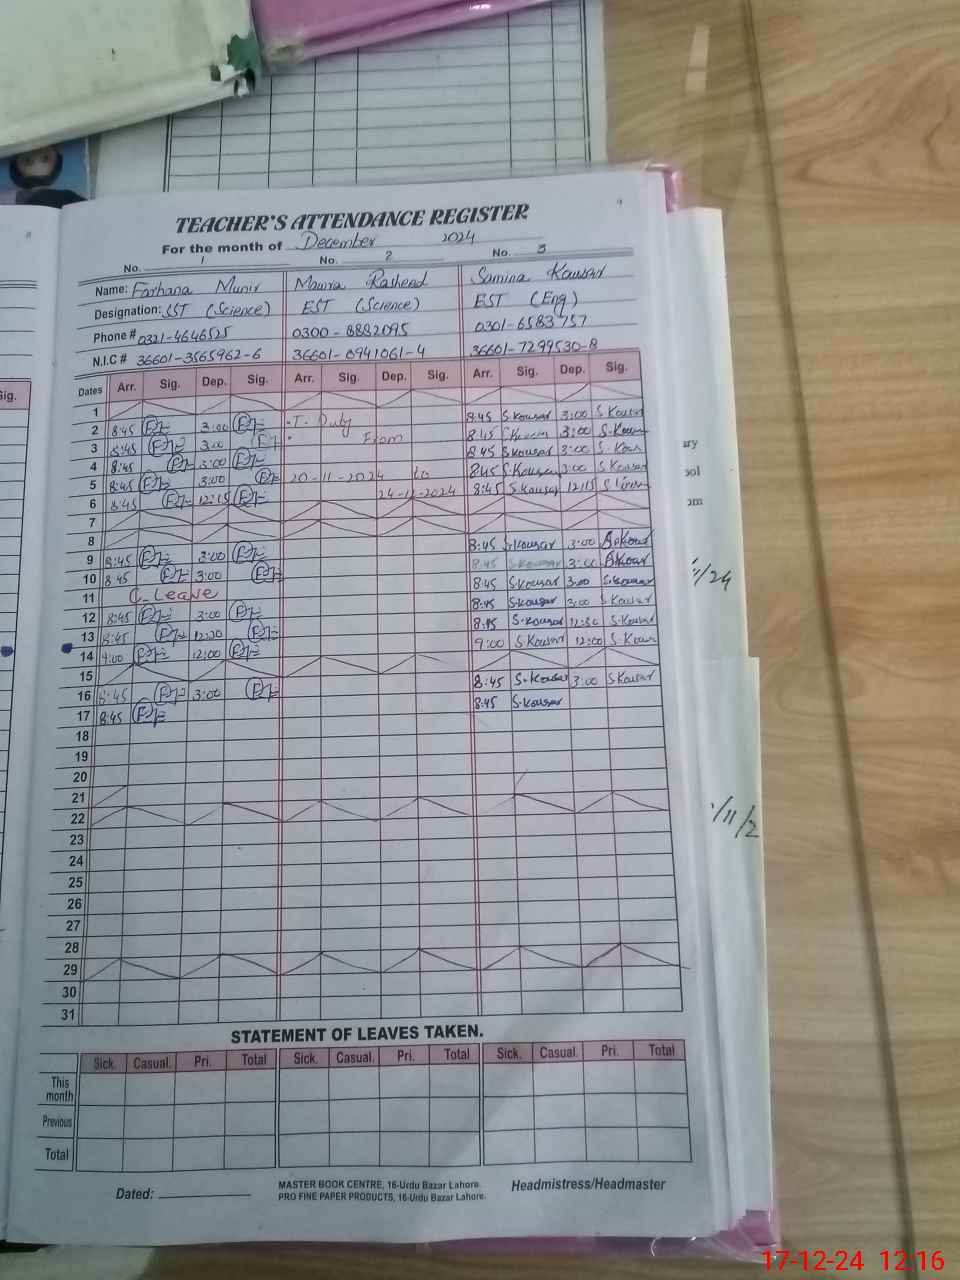 TEACHER'S ATTENDANCE REGISTER
For the month of December 2024
No. 1 No. 2 No. 3
Name: Farhana Munir Rasheed Samina Kousar
Designation: SST (Science) EST (Science) EST (Eng)
Phone # 0321-4646525 0300-8882095 0301-6583757
N.I.C # 36601-3565962-6 36601-0941061-4 36601-7299530-8
Dates Arr. Sig. Dep. Sig. Arr. Sig. Dep. Sig. Arr. Sig. Dep. Sig.
1
2 8:45 3:00 T. Duty 8:45 S.kousar 3:00 S.Kousar
3 8:45 3:00 From 8:45 3:00 S.Kousar
4 8:45 3:00 8:45 S.kousar 3:00 S.Kousar
5 8:45 3:00 20-11-2024 to 8:45 S.Kousar 3:00 S.Kousar
6 8:45 12:15 2024 8:45 S.kousar 12:15
7
8
9 8:45 3:00 8:45 S.kousar 3:00
10 8:45 3:00 8:45 S.kousar 3:00
11 C-Leave 8:45 S.kousar 3:00 S.kousar
12 8:45 3:00 8:45 S.kousar 3:00 S.Kousar
13 8:45 12:30 8:45 S.kousar 12:30 S.Kousar
14 9:00 12:00 9:00 S.Kousar 12:00 S.Kousar
15
16 8:45 3:00 8:45 S.Kousar 3:00 S.Kousar
17 8:45 8:45 S.Kousar
18
19
20
21
22
23
24
25
26
27
28
29
30
31
STATEMENT OF LEAVES TAKEN.
Sick. Casual. Pri. Total Sick. Casual. Pri. Total Sick. Casual. Pri. Total
This month
Previous
Total
Dated:
MASTER BOOK CENTRE, 16-Urdu Bazar Lahore.
PRO FINE PAPER PRODUCTS, 16-Urdu Bazar Lahore.
Headmistress/Headmaster
17-12-24 12:16